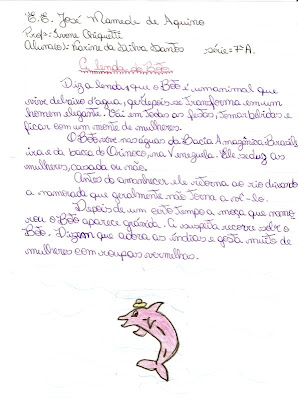 E.E. José Mamede de Aquino
Profª: Ivone Chiquetti
Aluna(o): Karine da Silva Santos série: 7ª A.
A lenda do Bôto
Diz a lenda, que o Bôto é um animal que
vive debaixo d'água, que depois se transforma em um
homem elegante. Vai em todas as festas, toma bebidas e
ficar com um monte de mulheres.
O Bôto vive nas águas da Bacia Amazônica Brasile
ira e da bacia do Orinoco, na Venezuela. Ele seduz as
mulheres, casada ou não.
Antes do amanhecer ele retorna ao rio dexando
a namorada que geralmente não torna a vê-lo.
Depois de um certo tempo a moça que namo
rou o Bôto aparece grávida. A suspeita recorre sobre o
Bôto. Dizem que adora as índias e gosta muito de
mulheres com roupas vermelhas.